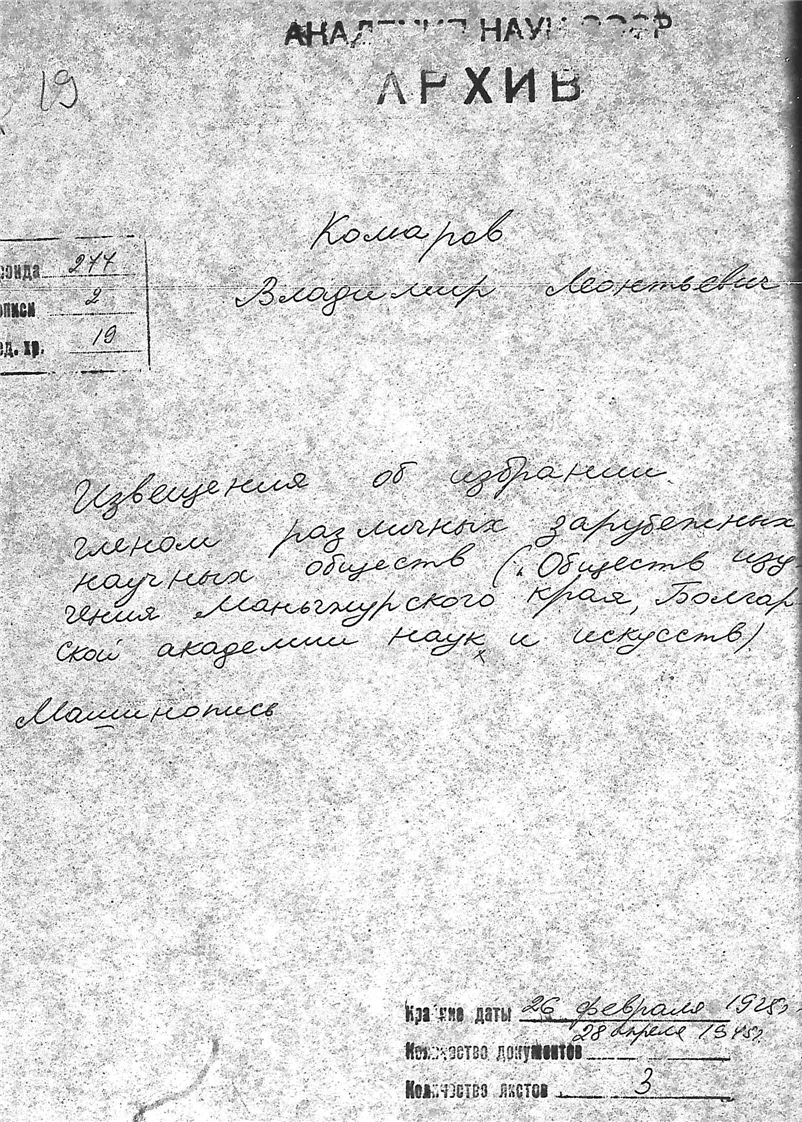 АКАДЕМИЯ НАУК СССР
АРХИВ
19
Комаров
Владимир Леонтьевич
фонда 277
описи 2
ед. хр. 19
Извещения об избрании
членом различных зарубежных
научных обществ („Обществ изу-
чения Маньчжурского края, Болгар
ской академии наук и искусств)
х
Машинопись
Крайние даты 26 февраля 1925г.
28 апреля 1945г.
Количество документов
Количество листов 3